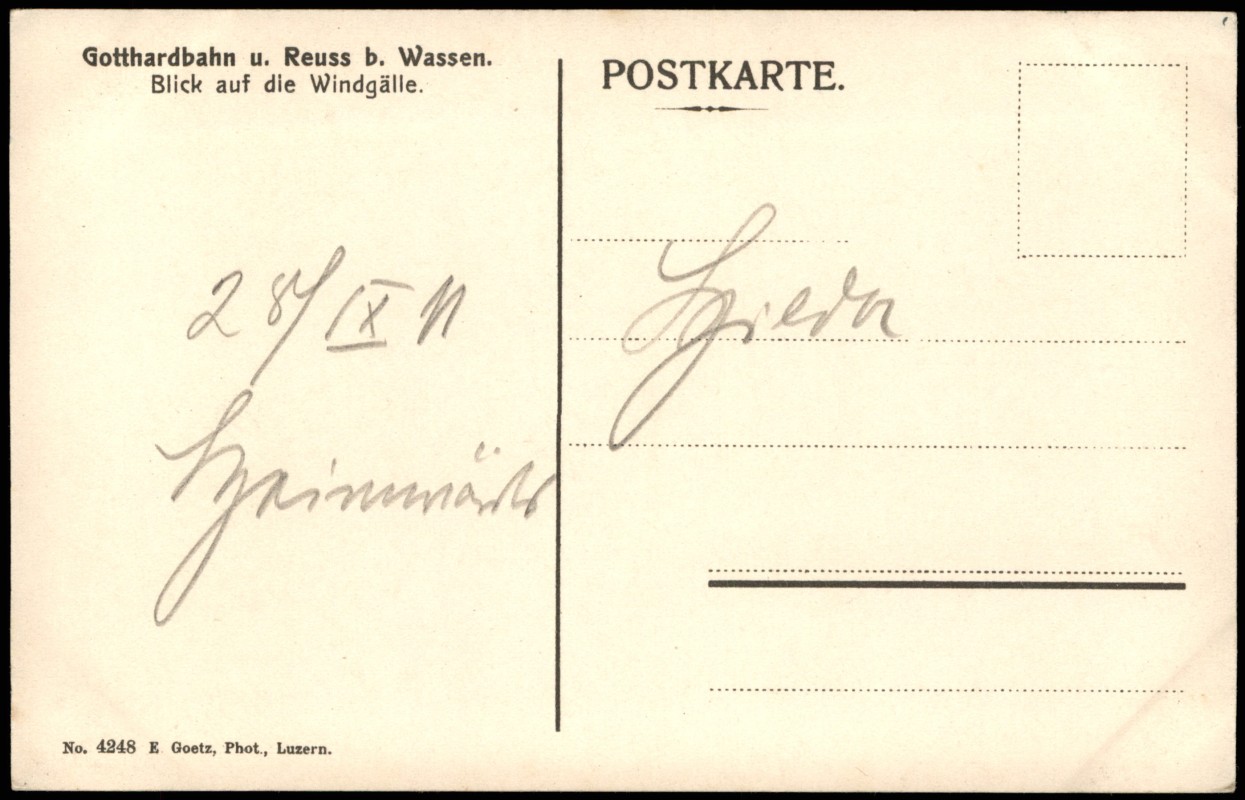 Gotthardbahn u. Reuss b. Wassen.
Blick auf die Windgälle.
28/IX 11
Heimwärts
No. 4248 E Goetz, Phot., Luzern.
POSTKARTE.
Hilda